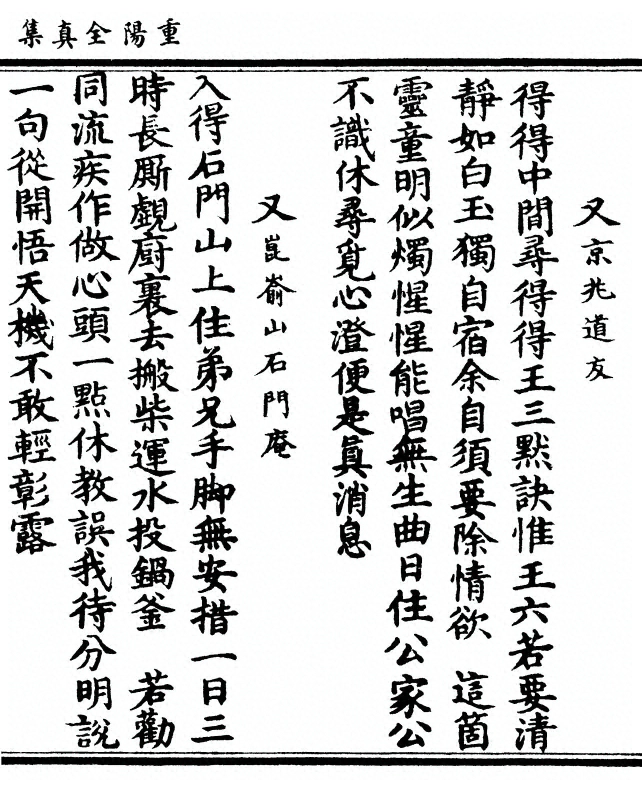 重陽全真集
又京兆道友
得得中間尋得得王三默訣惟王六若要清
靜如白玉獨自宿余自須要除情欲　這箇
靈童明似燭惺惺能唱無生曲日住公家公
不識休尋覓心澄便是真消息
又崑崳山石門庵
入得石門山上住弟兄手脚無安措一日三
時長厮覷廚裏去搬柴運水投鍋釜　若勸
同流疾作做心頭一點休教誤我待分明說
一句從開悟天機不敢輕彰露